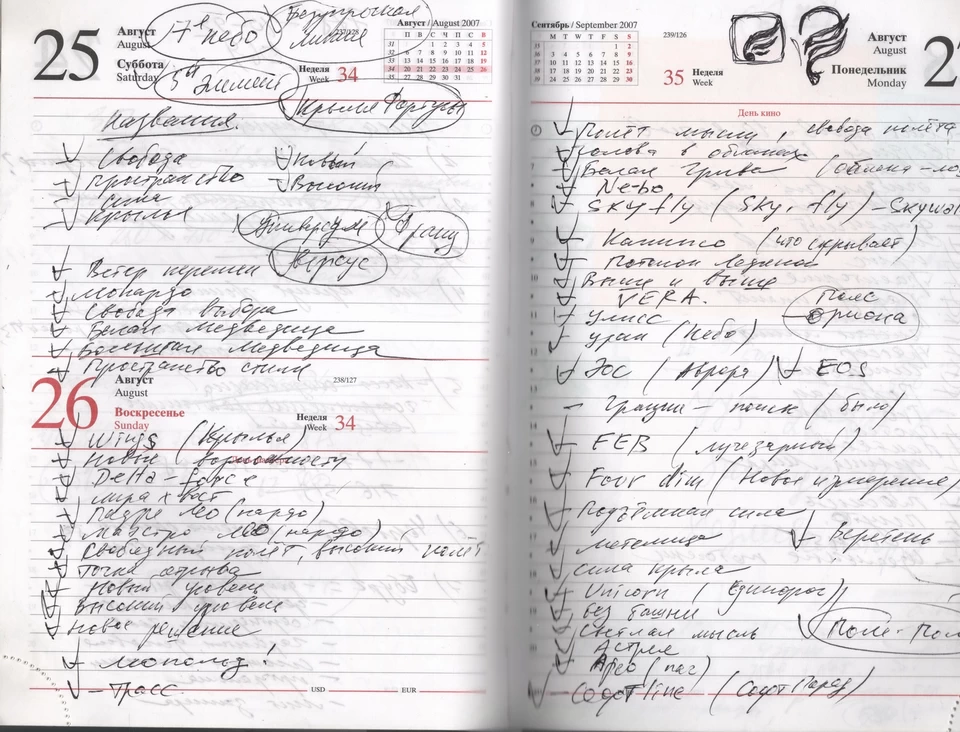 25
Август
August
Суббота
Saturday
7е небо
Безупречная линия
237/128
Август / August 2007
П В С Ч П С В
31 1 2 3 4 5
32 6 7 8 9 10 11 12
33 13 14 15 16 17 18 19
34 20 21 22 23 24 25 26
35 27 28 29 30 31
5й Элемент
Неделя
Week 34
Крылья Фортуны
Названия.
Свобода
Новый
Пространство
Высокий
сила
Крылья
Универсум
Версус
Ветер перемен
Монардо
Свобода выбора
Белая медведица
Большая медведица
Пространство стили
26
Август
August
Воскресенье
Sunday
238/127
Неделя
Week 34
Wings (Крылья)
Новые
Delta-force
Мира хвост
Падре Лео (нардо)
Маэстро Лео (нардо)
Свободный полёт, высокий полёт
Точка отрыва
Новый уровень
Высокий уровень
Новое решение
Леополд!
Трасс
USD EUR
Сентябрь / September 2007
M T W T F S S
35 1 2
36 3 4 5 6 7 8 9
37 10 11 12 13 14 15 16
38 17 18 19 20 21 22 23
39 24 25 26 27 28 29 30
239/126
35 Неделя
Week
Август
August
Понедельник
Monday
2
День кино
Полёт мысли, свобода полёта
Голова в облаках
Белая Грива (облака-ло
Ne-bo
Skyfly (Sky, fly) – Skywa
Калипсо (что скрывает)
Потолок Ледяной
Выше и выше
VERA.
Пояс Ориона
Улисс
Уран (Небо)
Эос (Аврора)
EOS
Грации – поиск (было)
FEB (лучезарный)
Four dim (Новое измерение)
Подъёмная сила
Метелица
Веретень
Сила крыла
Unicorn (Единорог)
Без башни
Светлая мысль
Астрея
Софтline (Софт Парад)